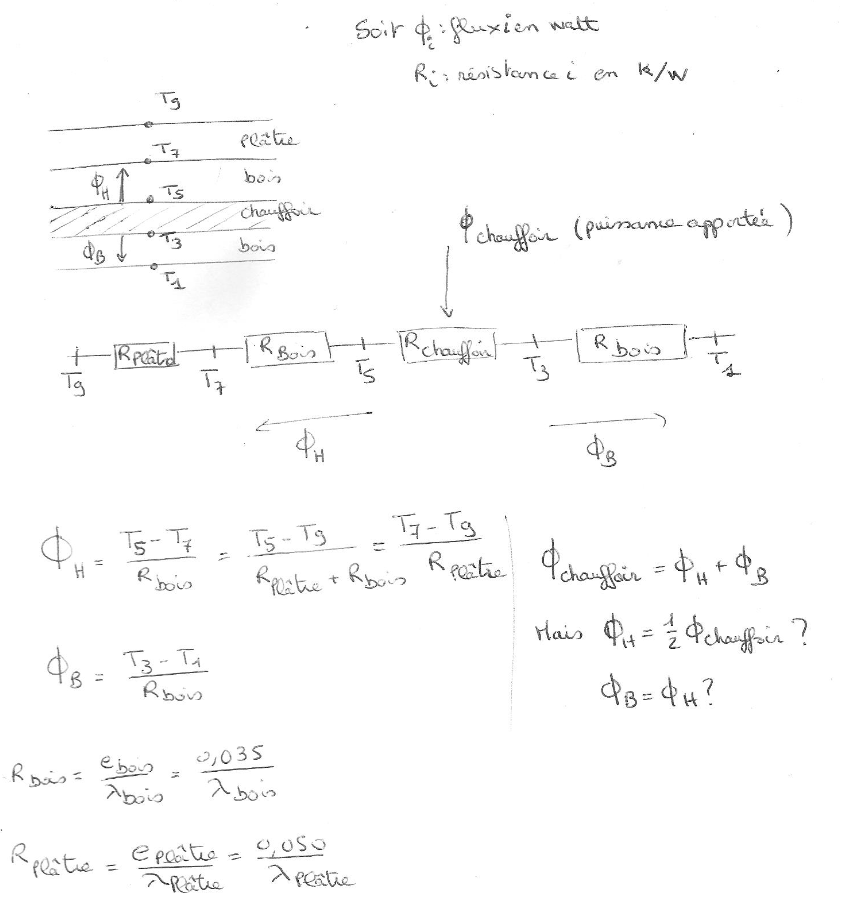 Soit ϕi : flux i en watt
Ri : résistance i en K/W
T9
plâtre
T7
bois
ϕH
T5
chauffoir
T3
bois
ϕB
T1
ϕchauffoir (puissance apportée)
RPlâtre RBois Rchauffoir Rbois
T9 T7 T5 T3 T1
ϕH ϕB
ϕH = (T5 - T7) / Rbois = (T5 - T9) / (RPlâtre + Rbois) = (T7 - T9) / RPlâtre
ϕB = (T3 - T1) / Rbois
ϕchauffoir = ϕH + ϕB
Mais ϕH = 1/2 ϕchauffoir ?
ϕB = ϕH ?
Rbois = ebois / λbois = 0,035 / λbois
RPlâtre = ePlâtre / λPlâtre = 0,050 / λPlâtre